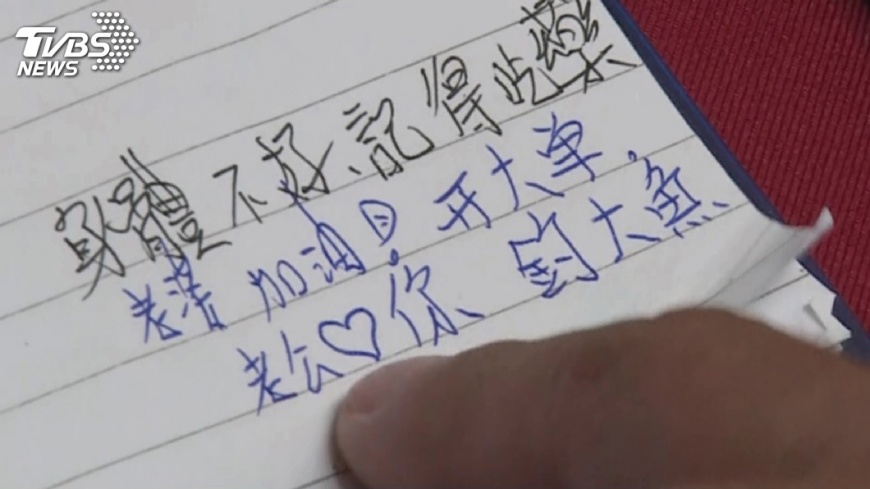 TVBS
NEWS
身體不好、記得吃藥
老婆 加油! 开大单.
老公♡你 釣大魚